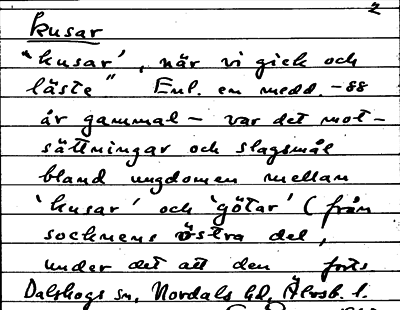 2
kusar
"kusar', när vi gick och
läste" Enl. en medd. -88
år gammal - var det mot-
sättningar och slagsmål
bland ungdomen mellan
'kusar' och 'götar' (från
socknens östra del,
under det att den forts.
Dalskogs sn, Nordals hd, Älvsb. l.